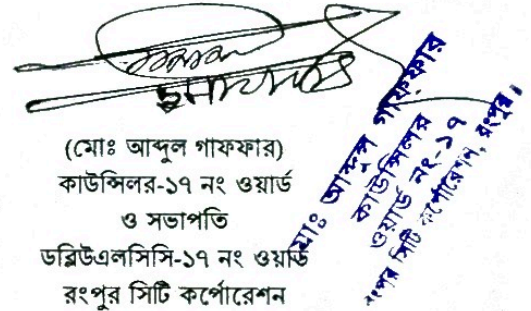 (মোঃ আব্দুল গাফফার)
কাউন্সিলর-১৭ নং ওয়ার্ড
ও সভাপতি
ডব্লিউএলসিসি-১৭ নং ওয়ার্ড
রংপুর সিটি কর্পোরেশন
মোঃ আব্দুল গাফ্ফার
কাউন্সিলর
ওয়ার্ড নং-১৭
রংপুর সিটি কর্পোরেশন, রংপুর।